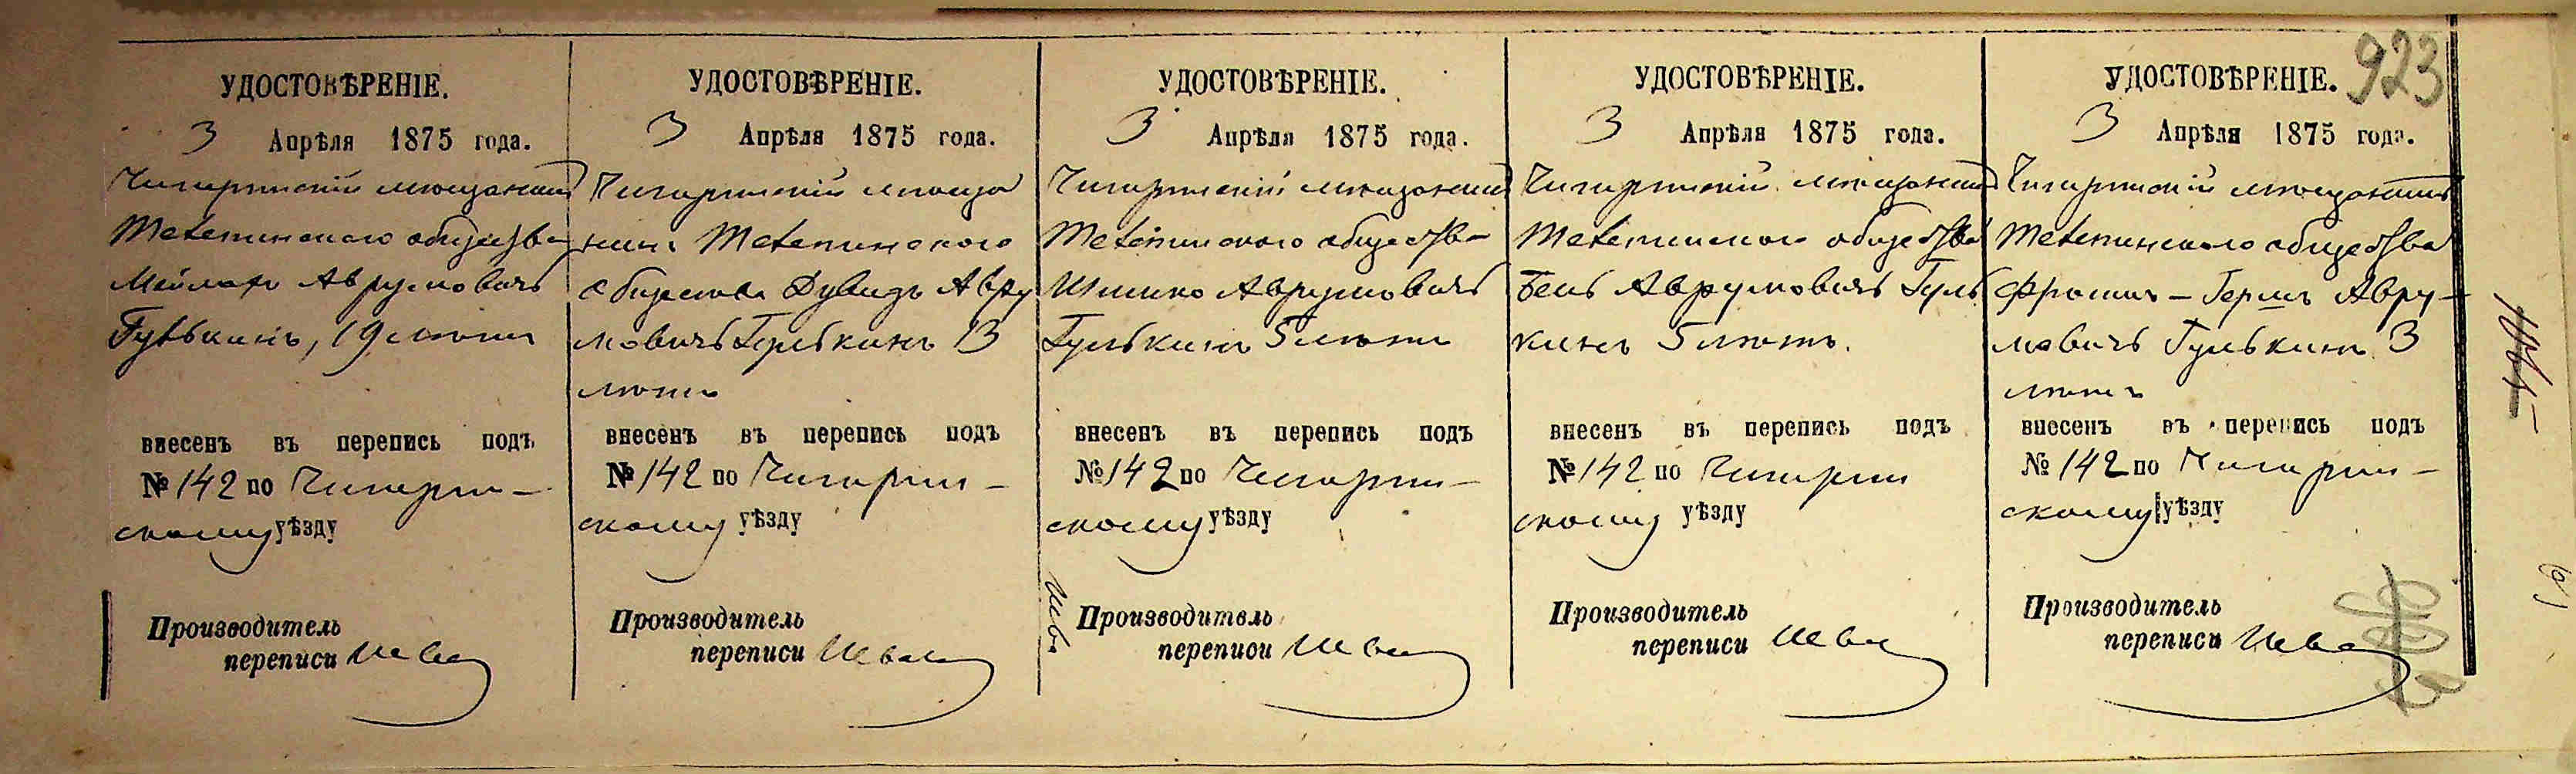 923
УДОСТОВѢРЕНІЕ.
3 Апрѣля 1875 года.
Чигиринскій мѣщанинъ
Меteпинскаго общества
Аврумовичъ
Гулькинъ, 19 лѣтъ
внесенъ въ перепись подъ
№ 142 по Чигирин-
скому уѣзду
Производитель
переписи
УДОСТОВѢРЕНІЕ.
3 Апрѣля 1875 года.
Чигиринскій мѣща
нинъ
общества Дувидъ Авру
мовичъ Гулькинъ 13
лѣтъ
внесенъ въ перепись подъ
№ 142 по Чигирин-
скому уѣзду
Производитель
переписи
УДОСТОВѢРЕНІЕ.
3 Апрѣля 1875 года.
Чигиринскій мѣщанинъ
общества
Аврумовичъ
Гулькинъ 5 лѣтъ
внесенъ въ перепись подъ
№ 142 по Чигирин-
скому уѣзду
Производитель
переписи
УДОСТОВѢРЕНІЕ.
3 Апрѣля 1875 года.
Чигиринскій мѣщанинъ
общества
Аврумовичъ Гуль
кинъ 5 лѣтъ.
внесенъ въ перепись подъ
№ 142 по Чигирин
скому уѣзду
Производитель
переписи
УДОСТОВѢРЕНІЕ.
3 Апрѣля 1875 года.
Чигиринскій мѣщанинъ
общества
Фроимъ-Гершъ Авру-
мовичъ Гулькинъ 3
лѣтъ
внесенъ въ перепись подъ
№ 142 по Чигирин-
скому уѣзду
Производитель
переписи